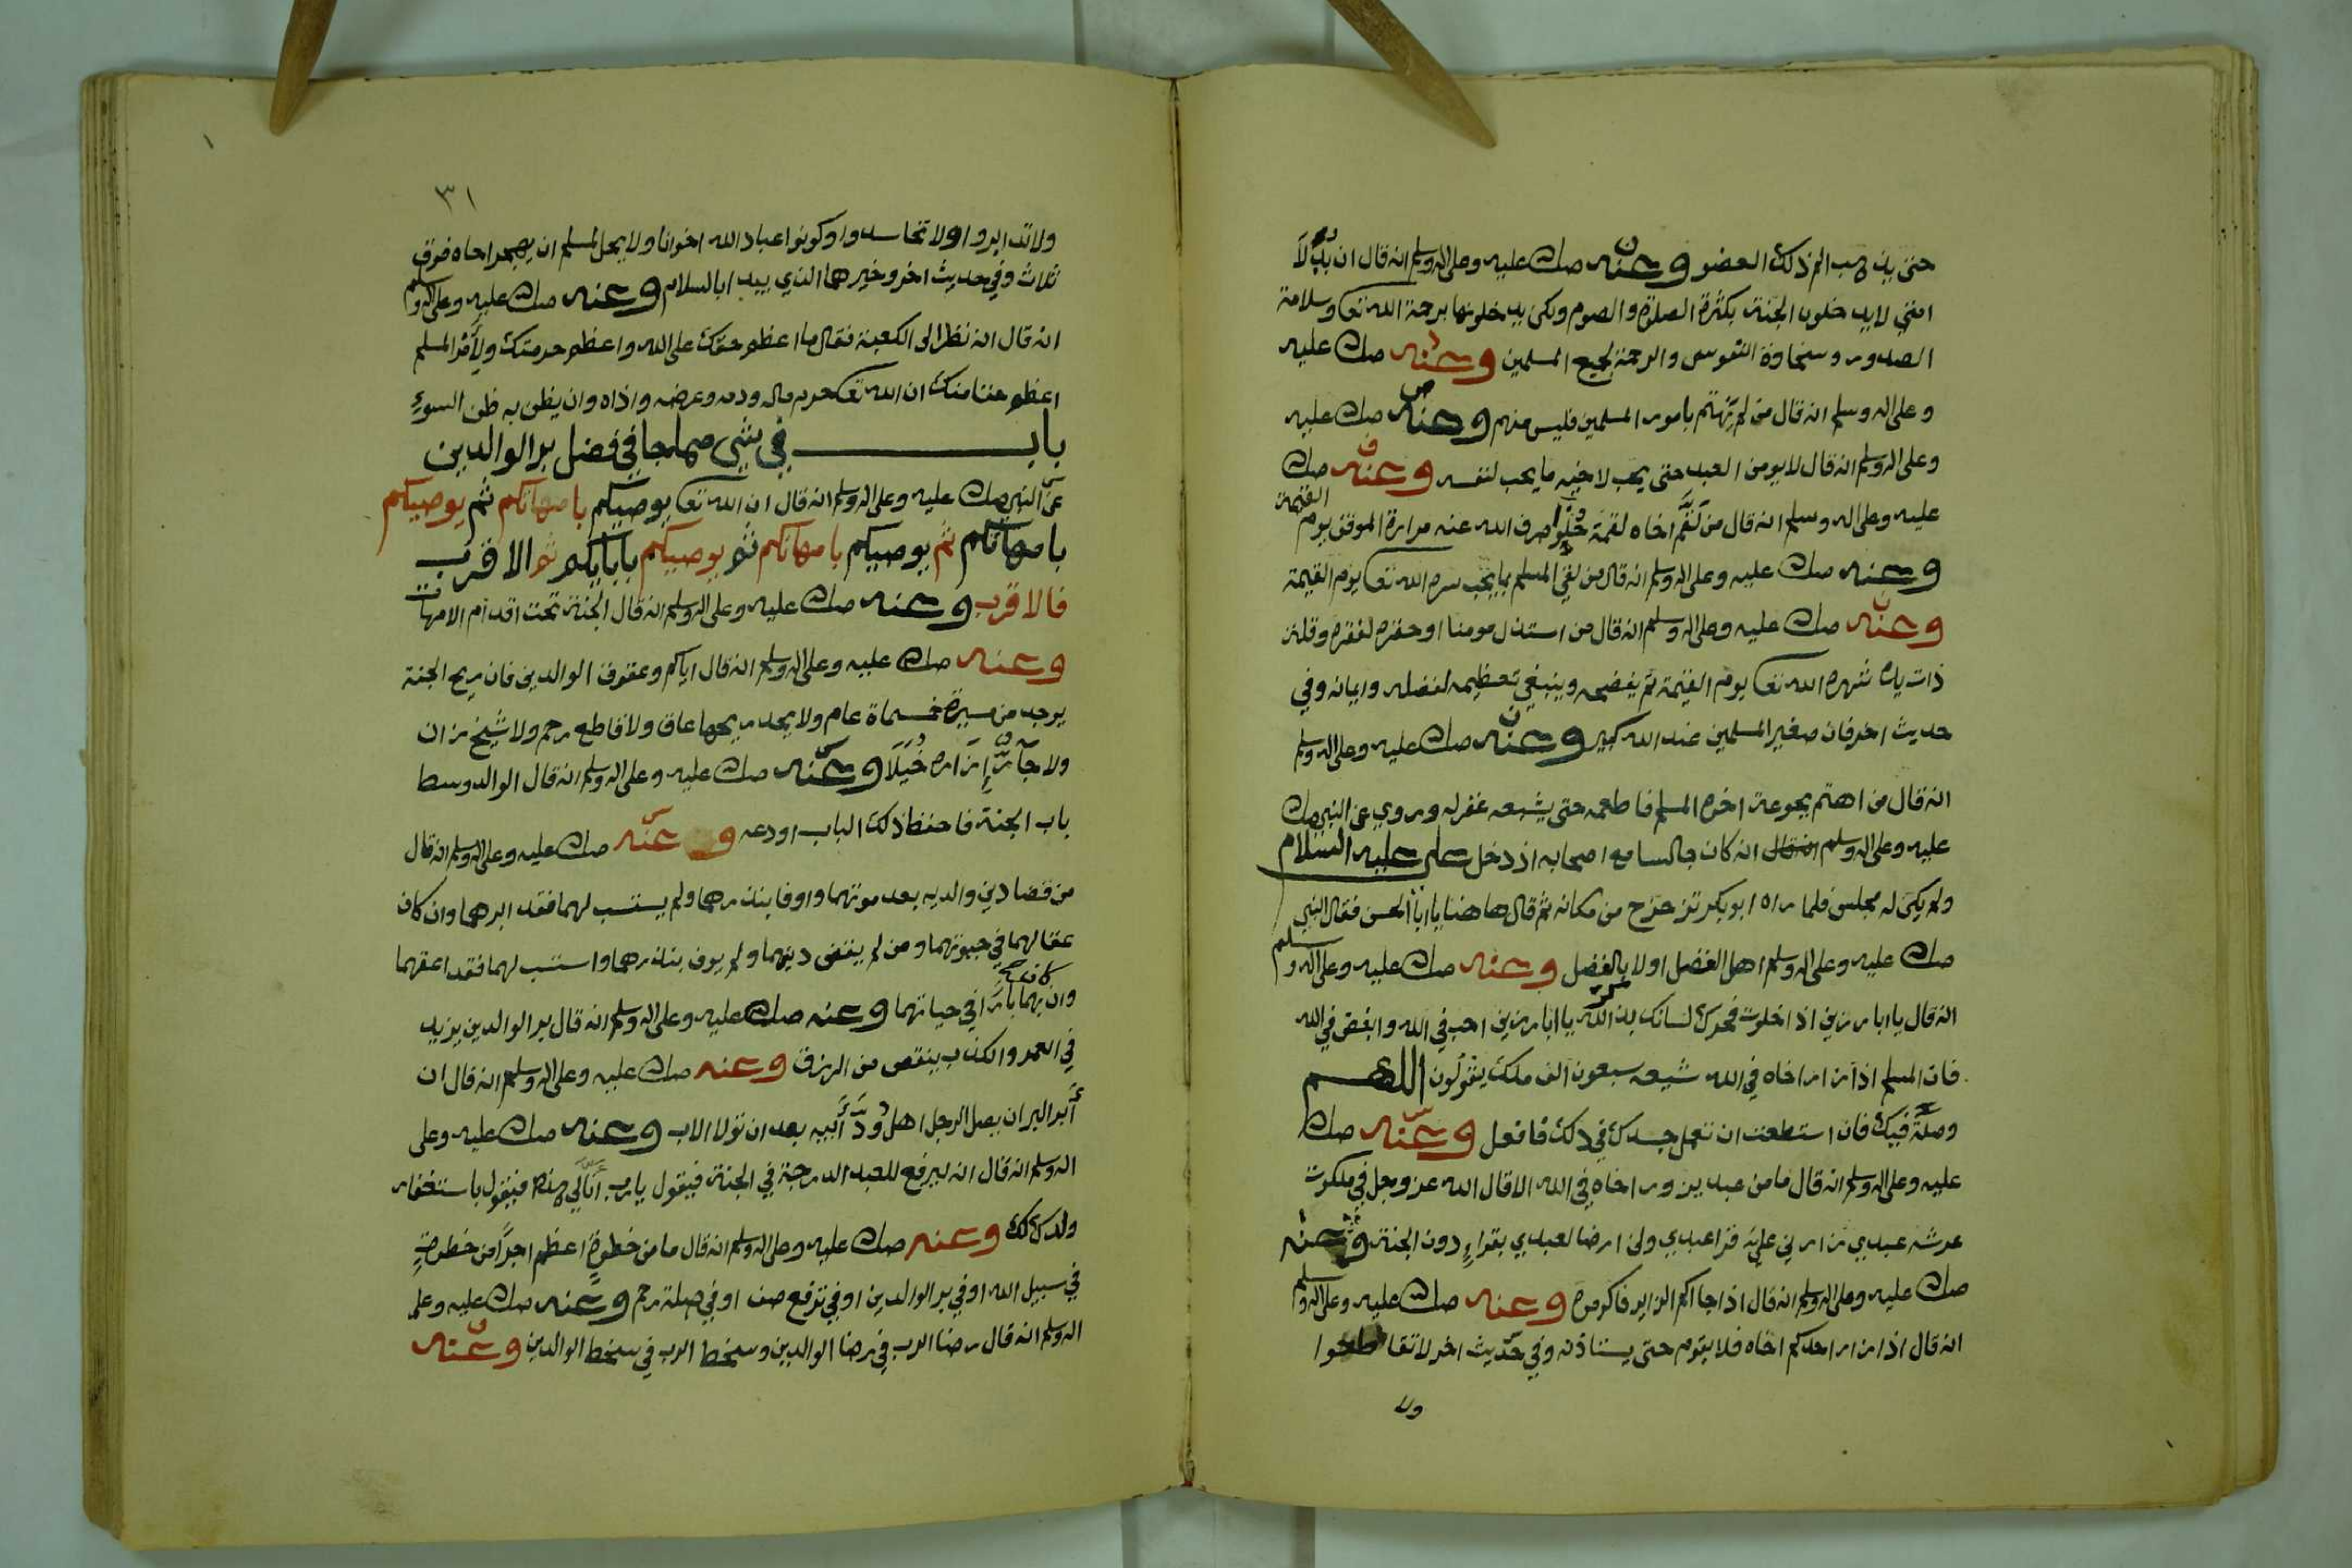 حتى يذهب الم ذلك العضو وعنه صلى عليه وعلى اله وسلم انه قال ان بدلا
امتي لا يدخلون الجنة بكثرة الصلوة والصوم ولكن يدخلونها برحمة الله تعا وسلامة
الصدور وسخاوة النفوس والرحمة لجميع المسلمين وعنه صلى عليه
وعلى اله وسلم انه قال من لم يهتم بامور المسلمين فليس منهم وعنه صلى عليه
وعلى اله وسلم انه قال لا يومن العبد حتى يحب لاخيه ما يحب لنفسه وعنه صلى
عليه وعلى اله وسلم انه قال من لقم اخاه لقمة حلوا صرف الله عنه مرارة الموقف يوم القيمة
وعنه صلى عليه وعلى اله وسلم انه قال من لقي المسلم بما يحب سره الله تعا يوم القيمة
وعنه صلى عليه وعلى اله وسلم انه قال من استذل مومنا او حقره لفقره وقلة
ذات يده شهره الله تعا يوم القيمة ثم يفضحه وينبغي تعظيمه لفضله وايمانه وفي
حديث اخر فان صغير المسلمين عند الله كبير وعنه صلى عليه وعلى اله وسلم
انه قال من اهتم بجوعة اخوه المسلم فاطعمه حتى يشبعه غفر له وروي عن النبي صلى
عليه وعلى اله وسلم انه كان جالسا مع اصحابه اذ دخل علي عليه السلام
ولم يكن له مجلس فلما راه ابو بكر تزحزح من مكانه ثم قال هاهنا يا ابا الحسن فقال النبي
صلى عليه وعلى اله وسلم اهل الفضل اولا بالفضل وعنه صلى عليه وعلى اله وسلم
انه قال يا ابا رزين اذا خلوت فحرك لسانك بذكر الله يا ابا رزين احب في الله وابغض في الله
فان المسلم اذا زار اخاه في الله شيعه سبعون الف ملك يقولون اللهم
وصله فيك فان استطعت ان تعمل جسدك في ذلك فافعل وعنه صلى
عليه وعلى اله وسلم انه قال ما من عبد يزور اخاه في الله الا قال الله عز وجل في ملكوت
عرشه عبدي زارني علي قرا عبدي ولن ارضا لعبدي بقراء دون الجنة وعنه
صلى عليه وعلى اله وسلم انه قال اذا جاكم الزاير فاكرموه وعنه صلى عليه وعلى اله وسلم
انه قال اذا زار احدكم اخاه فلا يقوم حتى يستاذنه وفي حديث اخر لا تقاطعوا
ولا
٣١
ولا تدابروا ولا تحاسدوا وكونوا عباد الله اخوانا ولا يحل لمسلم ان يهجر اخاه فوق
ثلاث وفي حديث اخر وخيرهما الذي يبدا بالسلام وعنه صلى عليه وعلى اله وسلم
انه قال انه نظر الى الكعبة فقال ما اعظم حقك على الله واعظم حرمتك ولامر المسلم
اعظم حقا منك ان الله تعا حرم ماله ودمه وعرضه واذاه وان يظن به ظن السوء
باب في شي مما جا في فضل بر الوالدين
عن النبي صلى عليه وعلى اله وسلم انه قال ان الله تعا يوصيكم بامهاتكم ثم يوصيكم
بامهاتكم ثم يوصيكم بامهاتكم ثم يوصيكم بابايكم ثم الاقرب
فالاقرب وعنه صلى عليه وعلى اله وسلم انه قال الجنة تحت اقدام الامهات
وعنه صلى عليه وعلى اله وسلم انه قال اياكم وعقوق الوالدين فان ريح الجنة
يوجد من مسيرة خمسماة عام ولا يجد ريحها عاق ولا قاطع رحم ولا شيخ زان
ولا جار ازاره خيلا وعنه صلى عليه وعلى اله وسلم انه قال الوالد وسط
باب الجنة فاحفظ ذلك الباب اودعه وعنه صلى عليه وعلى اله وسلم انه قال
من قضا دين والديه بعد موتهما واوفا بنذرهما ولم يستسب لهما فقد ابرهما وان كان
عقا لهما في حيوتهما ومن لم يقض دينهما ولم يوف بنذرهما واستسب لهما فقد اعقهما
وان كان بهما بارا في حياتهما وعنه صلى عليه وعلى اله وسلم انه قال بر الوالدين يزيد
في العمر والكذب ينقص من الرزق وعنه صلى عليه وعلى اله وسلم انه قال ان
أبر البر ان يصل الرجل اهل ود أبيه بعد ان تولا الاب وعنه صلى عليه وعلى
اله وسلم انه قال انه ليرفع للعبد الدرجة في الجنة فيقول يارب أنا لي هذه فيقول باستغفار
ولدك لك وعنه صلى عليه وعلى اله وسلم انه قال ما من خطوة اعظم اجرا من خطوة
في سبيل الله او في بر الوالدين او في ترقع صف او في صلة رحم وعنه صلى عليه وعلى
اله وسلم انه قال رضا الرب في رضا الوالدين وسخط الرب في سخط الوالدين وعنه